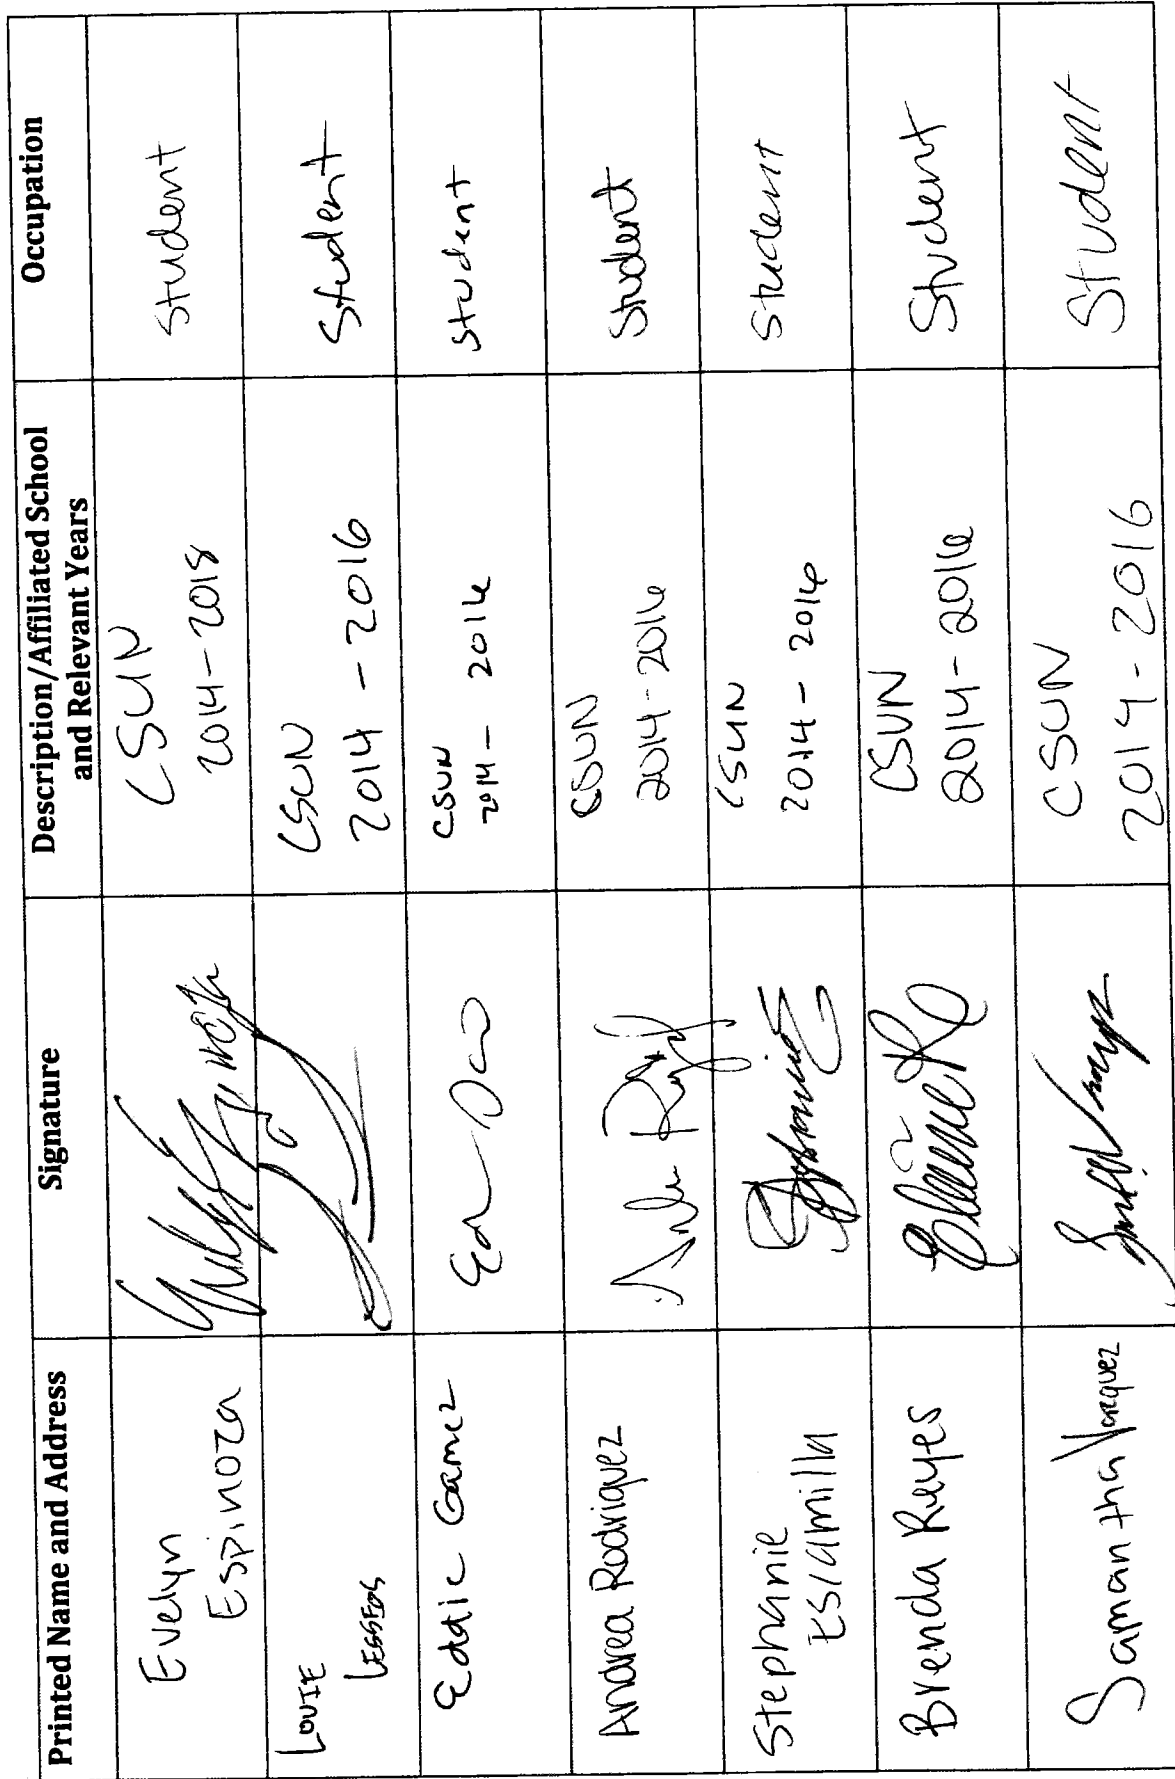 Printed Name and Address
Signature
Description/Affiliated School
and Relevant Years
Occupation
Evelyn
Espinoza
CSUN
2014-2018
Student
LOUIE
CSUN
2014-2016
Student
Eddie Gamez
CSUN
2014-2016
Student
Andrea Rodriguez
CSUN
2014-2016
Student
Stephanie
Escamilla
CSUN
2014-2016
Student
Brenda Reyes
CSUN
2014-2016
Student
Samantha Vazquez
CSUN
2014-2016
Student